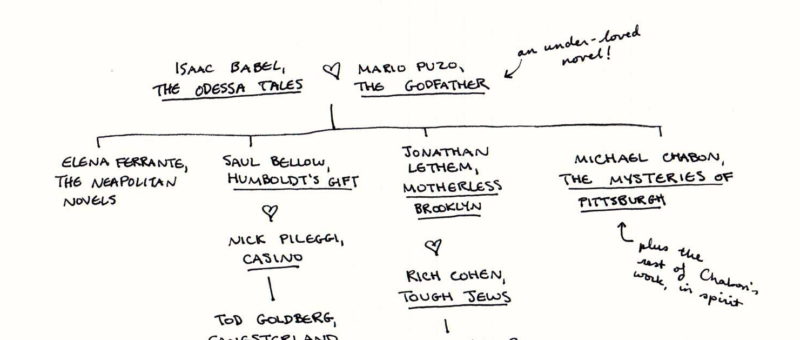 ISAAC BABEL,
THE ODESSA TALES
MARIO PUZO,
THE GODFATHER
an under-loved
novel!
ELENA FERRANTE,
THE NEAPOLITAN
NOVELS
SAUL BELLOW,
HUMBOLDT'S GIFT
NICK PILEGGI,
CASINO
TOD GOLDBERG,
GANGSTERLAND
JONATHAN
LETHEM,
MOTHERLESS
BROOKLYN
RICH COHEN,
TOUGH JEWS
MICHAEL CHABON,
THE MYSTERIES OF
PITTSBURGH
plus the
rest of Chabon's
work, in spirit